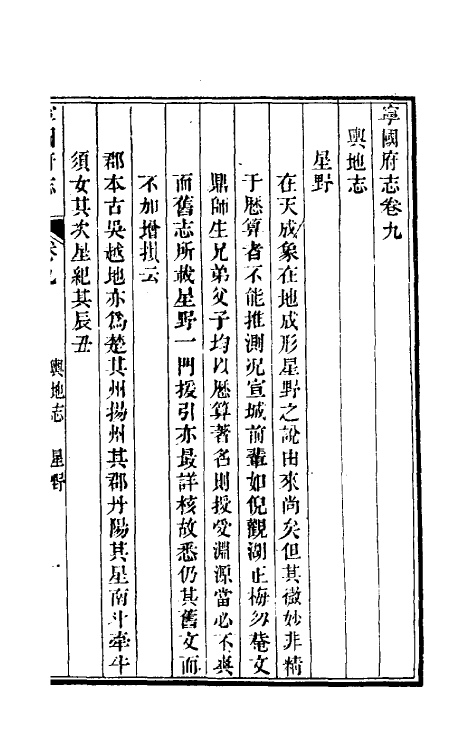 寧國府志卷九
輿地志
星野
在天成象在地成形星野之說由來尚矣但其微妙非精
于厯算者不能推測況宣城前輩如倪觀湖正梅勿菴文
鼎師生兄弟父子均以厯算著名則授受淵源當必不爽
而舊志所載星野一門援引亦最詳核故悉仍其舊文而
不加增損云
郡本古吳越地亦為楚其州揚州其郡丹陽其星南斗牽牛
須女其次星紀其辰丑
寧國府志 卷九 輿地志 星野 一